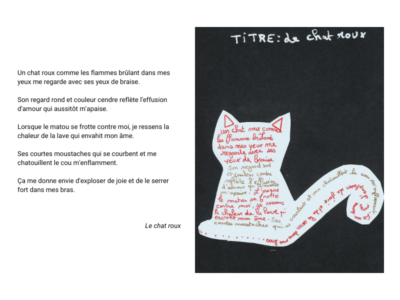 Un chat roux comme les flammes brûlant dans mes
yeux me regarde avec ses yeux de braise.
Son regard rond et couleur cendre reflète l'effusion
d'amour qui aussitôt m'apaise.
Lorsque le matou se frotte contre moi, je ressens la
chaleur de la lave qui envahit mon âme.
Ses courtes moustaches qui se courbent et me
chatouillent le cou m'enflamment.
Ça me donne envie d'exploser de joie et de le serrer
fort dans mes bras.
Le chat roux
TiTRE: le chat roux
un chat roux comme
les flammes brûlant
dans mes yeux me
regarde avec ses
yeux de braise
Son regard rond
et couleur cendre
reflète l'effusion
d'amour qui aussitôt
m'apaise. Lorsque
le matou se frotte
contre moi, je ressens
la chaleur de la lave qui
envahit mon âme. Ses
courtes moustaches qui se courbent et me chatouillent le cou m'enflamment